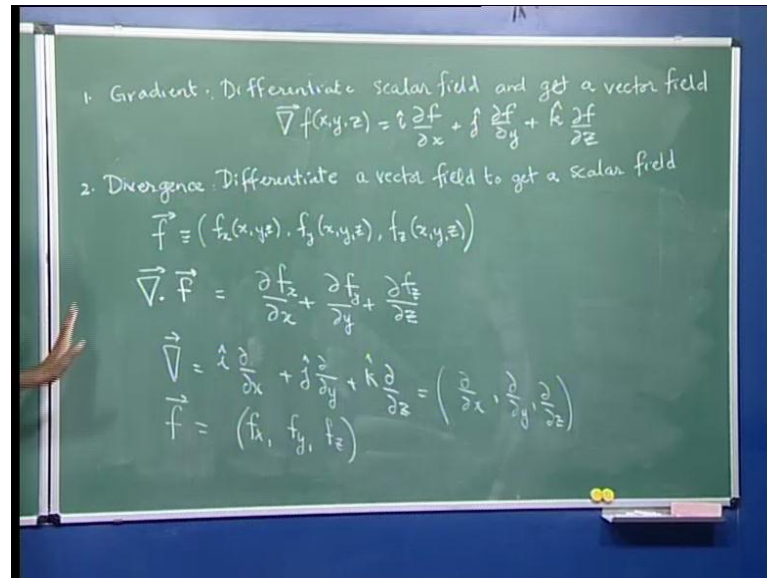 1. Gradient : Differentiate scalar field and get a vector field
∇⃗ f(x,y,z) = î ∂f/∂x + ĵ ∂f/∂y + k̂ ∂f/∂z
2. Divergence : Differentiate a vector field to get a scalar field
f⃗ ≡ (fx(x,y,z), fy(x,y,z), fz(x,y,z))
∇⃗. f⃗ = ∂fx/∂x + ∂fy/∂y + ∂fz/∂z
∇⃗ = î ∂/∂x + ĵ ∂/∂y + k̂ ∂/∂z = (∂/∂x, ∂/∂y, ∂/∂z)
f⃗ = (fx, fy, fz)